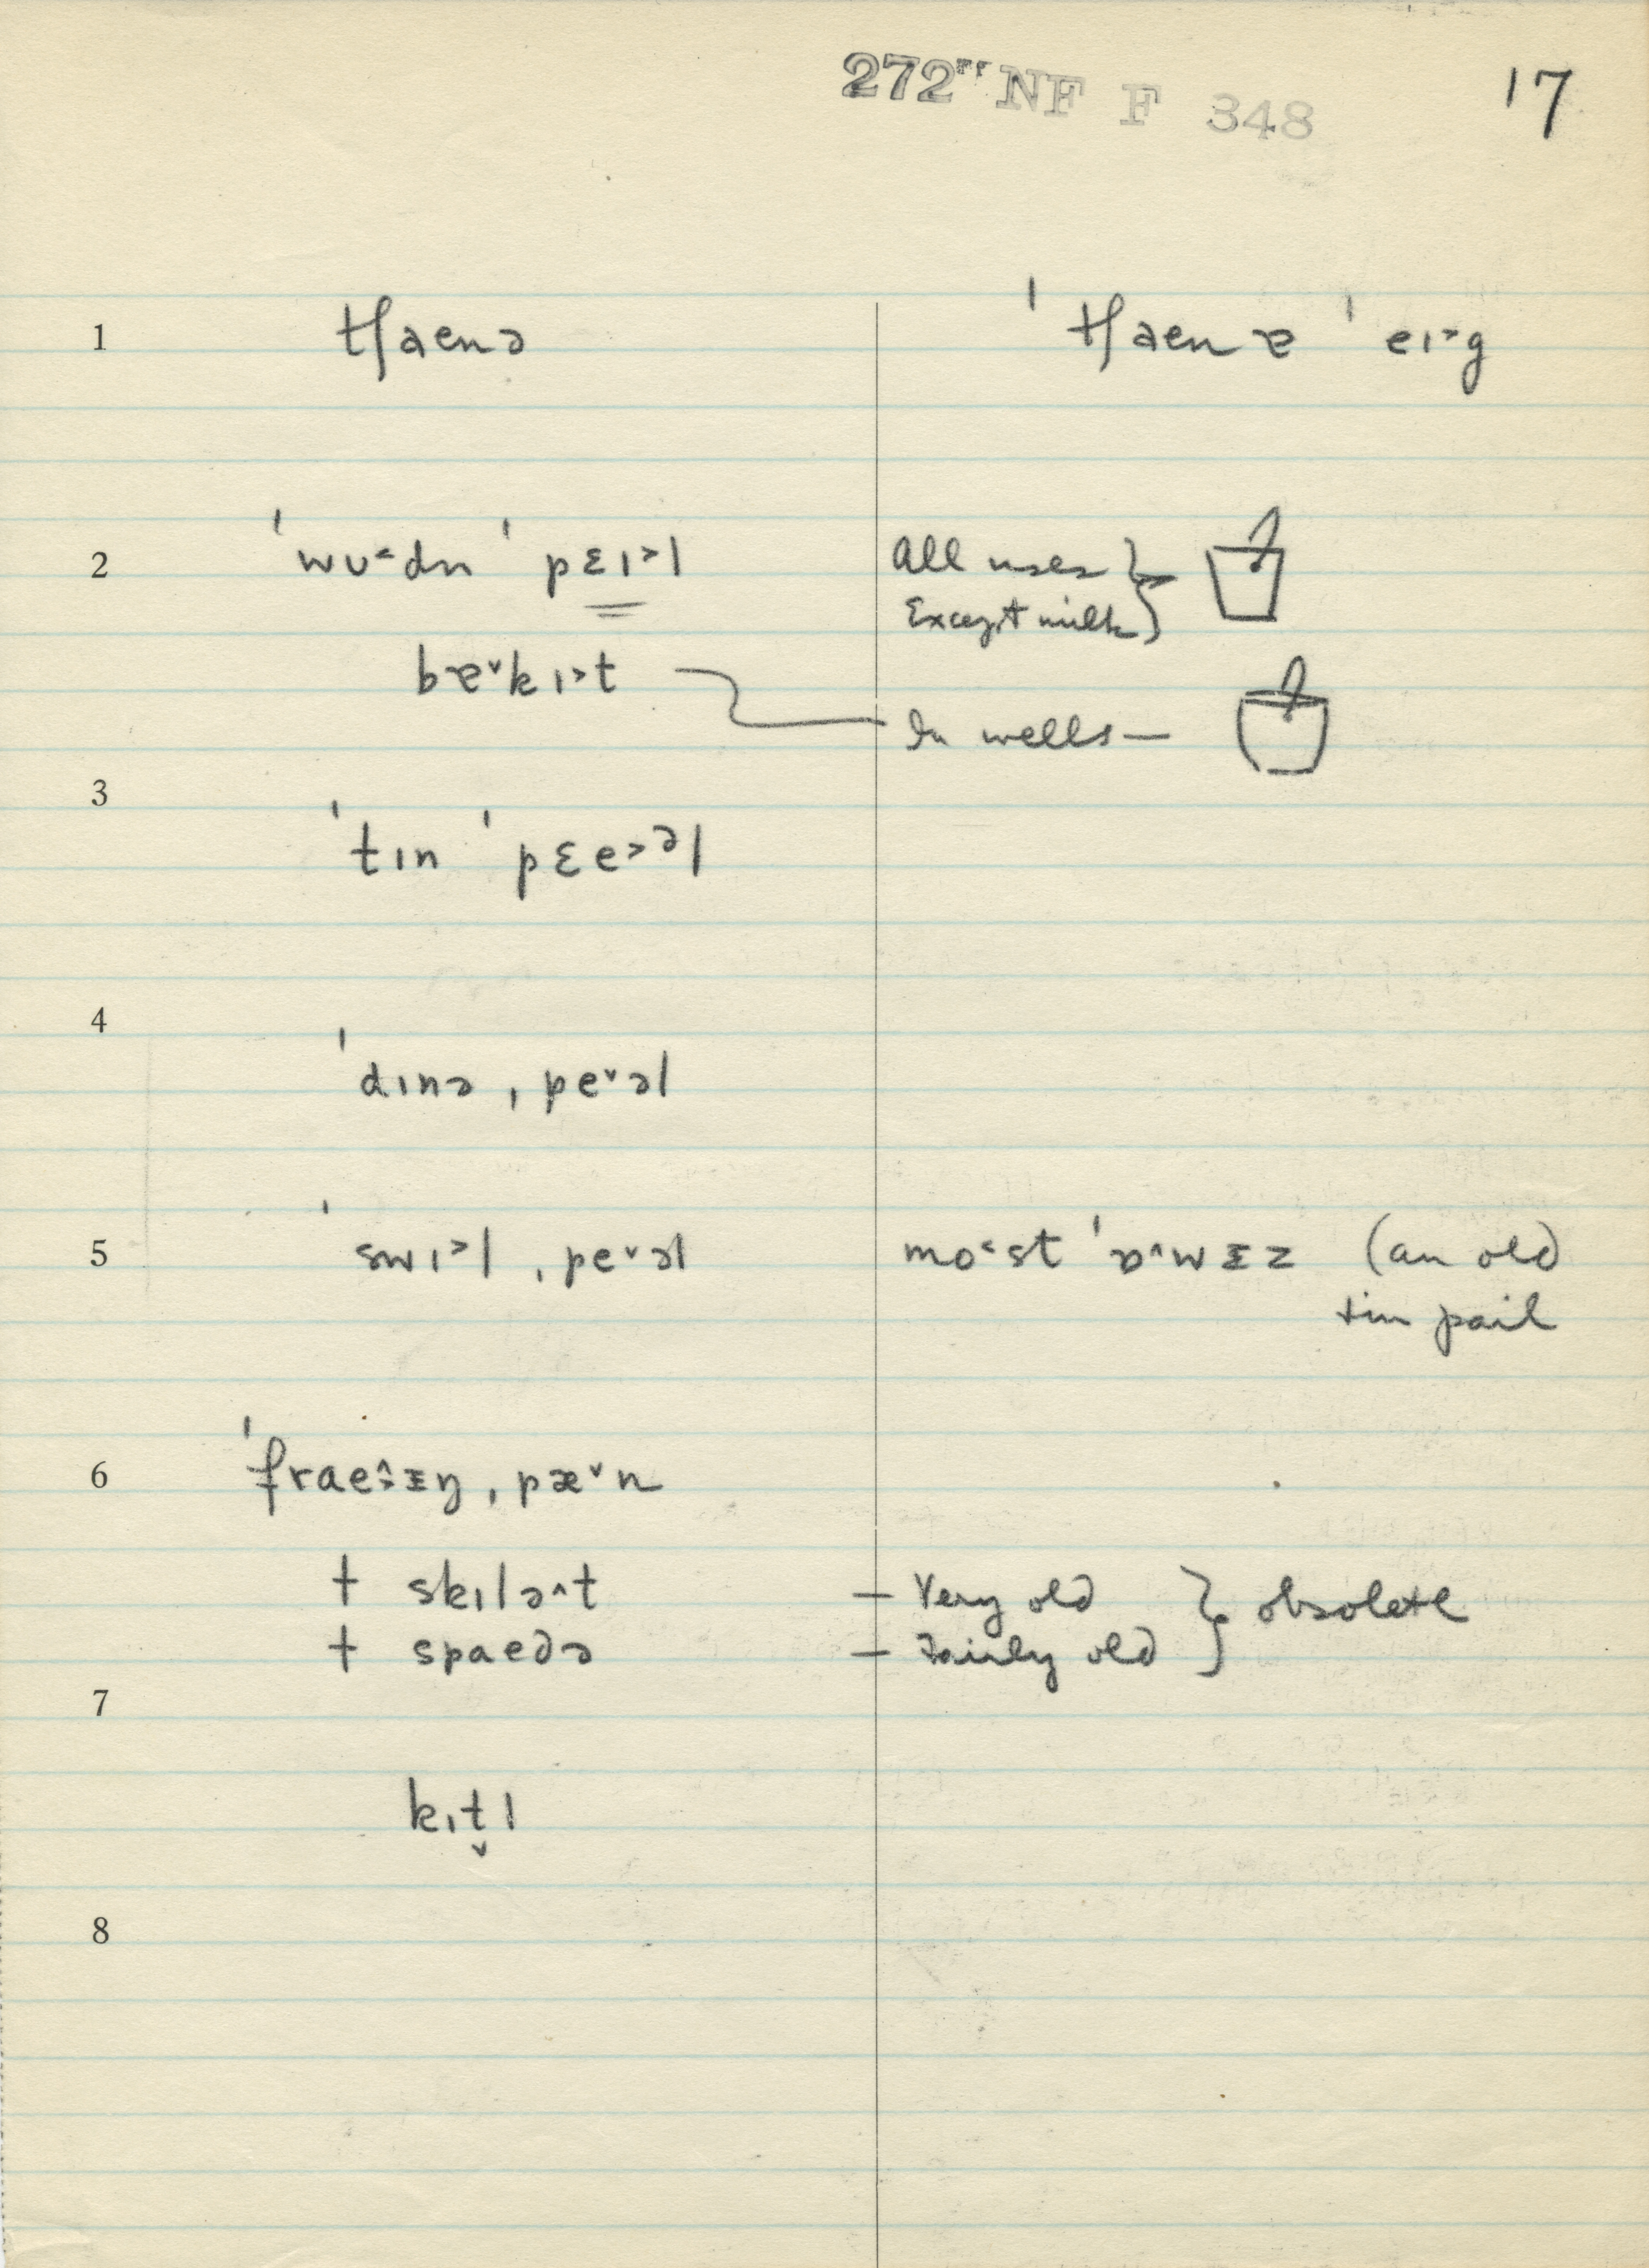 272 NF F 348 17
1 tʃaenə ˈtʃaenɐ ˈeɪ˃g
2 ˈwʊ˂dn ˈpɛɪ˃l All uses
Except milk
bɐ˅kɪ˃t
In wells —
3
ˈtɪn ˈpɛe˃ᵊl
4
ˈdɪnə ˌpe˅əl
5 ˈswɪ˃l ˌpe˅əl mo˂st ˈɒ˄wᵻz (an old
tin pail
6 ˈfrae˄ᵻŋ ˌpæ˅n
† skɪlə˄t — Very old } obsolete
† spaedə — Fairly old
7
kɪt̬l
8